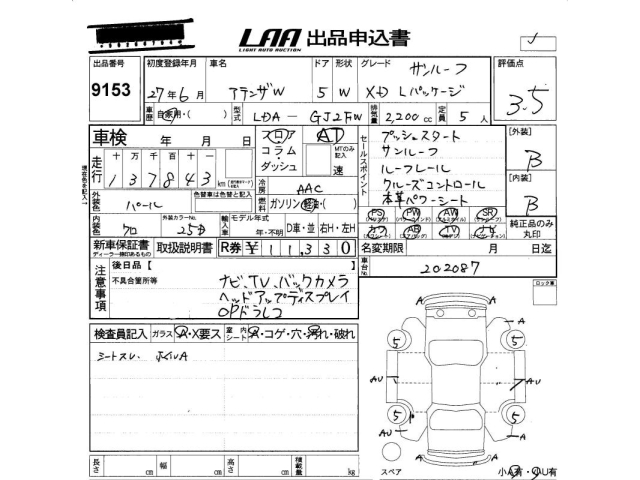 LAA 出品申込書
LIGHT AUTO AUCTION
出品番号 初度登録年月 車名 ドア 形状 グレード サンルーフ 評価点
9153 27年6月 アテンザW 5 W XD Lパッケージ 3.5
車歴 自家用・( ) 型式 LDA－GJ2FW 排気量 2,200cc 定員 5人
車検 年 月 日 フロア AT セールスポイント プッシュスタート [外装]
コラム・ダッシュ MTのみ記入 速 サンルーフ B
走行 十 万 千 百 十 ルーフレール
137843 km 冷房 AAC クルーズコントロール [内装]
外装色 パール 色替車は色替と記入 燃料 ガソリン・軽油・( ) 本革パワーシート B
PS PW AW SR 純正品のみ丸印
内装色 クロ 外装カラーNo. 25D 輸入車 モデル年式 年・不明 D車・並 右H・左H カワ AB TV ナビ
新車保証書 取扱説明書 R券¥ 11,330 名変期限 月 日迄
ディーラー捺印あるもの
注意事項 後日品【 】 車台No. 202087
不具合箇所等 ナビ、TV、バックカメラ
ヘッドアップディスプレイ
OPドラレコ
ロック車
検査員記入 ガラス A・X要ス 室内シート A・コゲ・穴・汚れ・破れ
シートスレ、ホイルA
A A
5 5
A A
AU AU
5 5
AU A
A
長さ cm 幅 cm 高さ cm 積載量 kg
スペア 小A有・小U有